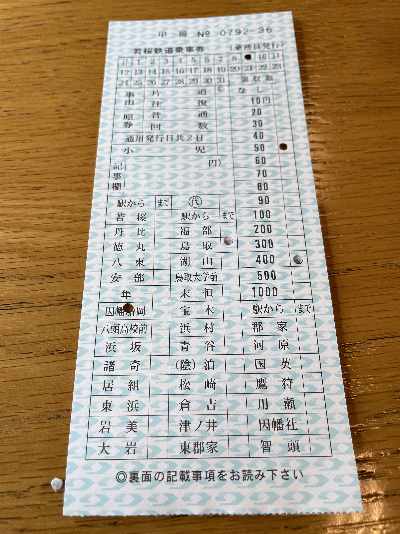 甲 号 № 0792-36
若桜鉄道乗車券 (乗務員発行)
1 2 3 4 5 6 7 8 10 11
12 13 14 15 16 17 18 19 20 21 22 23
24 25 26 27 28 29 30 31 領収額
事由 片道 なし
往復 10円
原券 普通 20
回数 30
通用発行日共2日 40
小児 50
記事欄 円) 60
70
80
駅から まで 代 90
若桜 駅から まで 100
丹比 福部 200
徳丸 鳥取 300
八東 湖山 400
安部 鳥取大学前 500
隼 末恒 1000
因幡船岡 宝木 駅から まで
八頭高校前 浜村 郡家
浜坂 青谷 河原
諸寄 (陰)泊 国英
居組 松崎 鷹狩
東浜 倉吉 用瀬
岩美 津ノ井 因幡社
大岩 東郡家 智頭
◎裏面の記載事項をお読み下さい